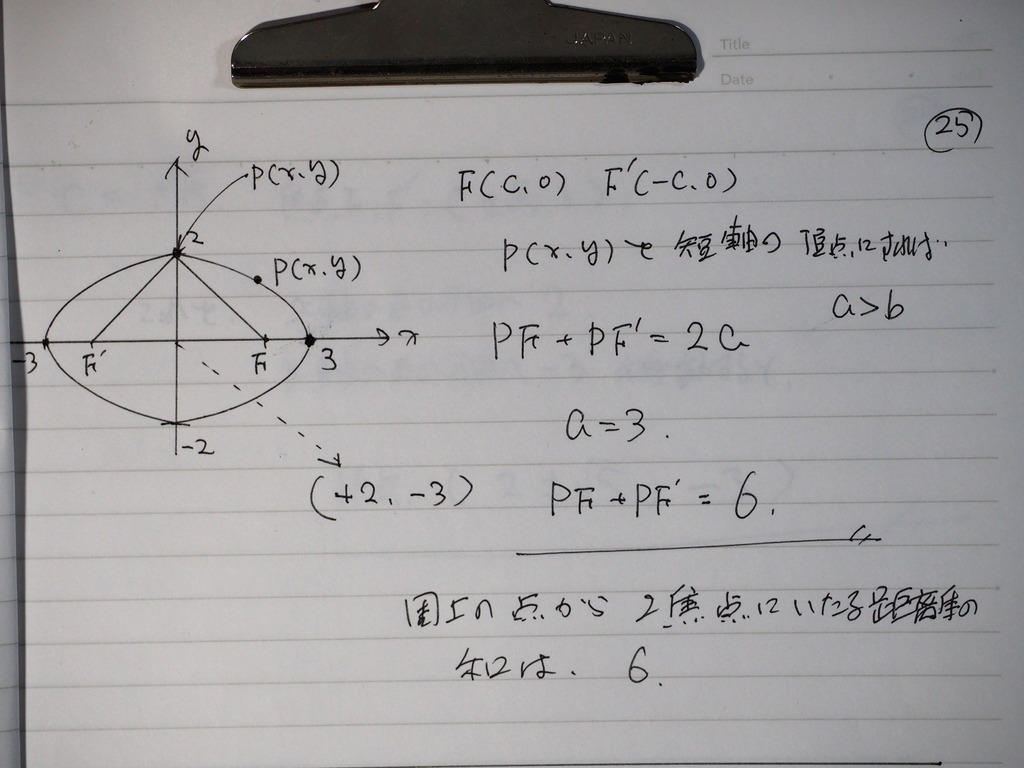 JAPAN
Title
Date
25
y
P(x,y)
F(c,0) F'(-c,0)
2
P(x,y)
P(x,y)を短軸の頂点にすれば
a>b
PF+PF'=2a
-3 F' F 3 x
a=3.
-2
(+2,-3)
PF+PF'=6.
周上の点から 2焦点にいたる距離の
和は. 6.